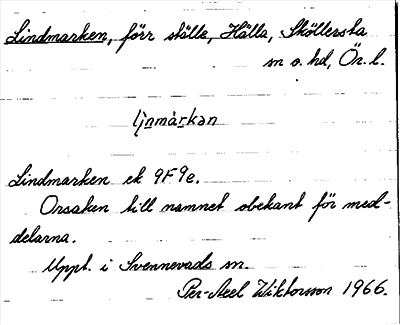 Lindmarken, förr ställe, Hälla, Sköllersta
sn o. hd, Ör. l.
li̯nmàrkən
Lindmarken ek 9F9e.
Orsaken till namnet obekant för med-
delarna.
Uppt. i Svennevads sn.
Per-Axel Wiktorsson 1966.